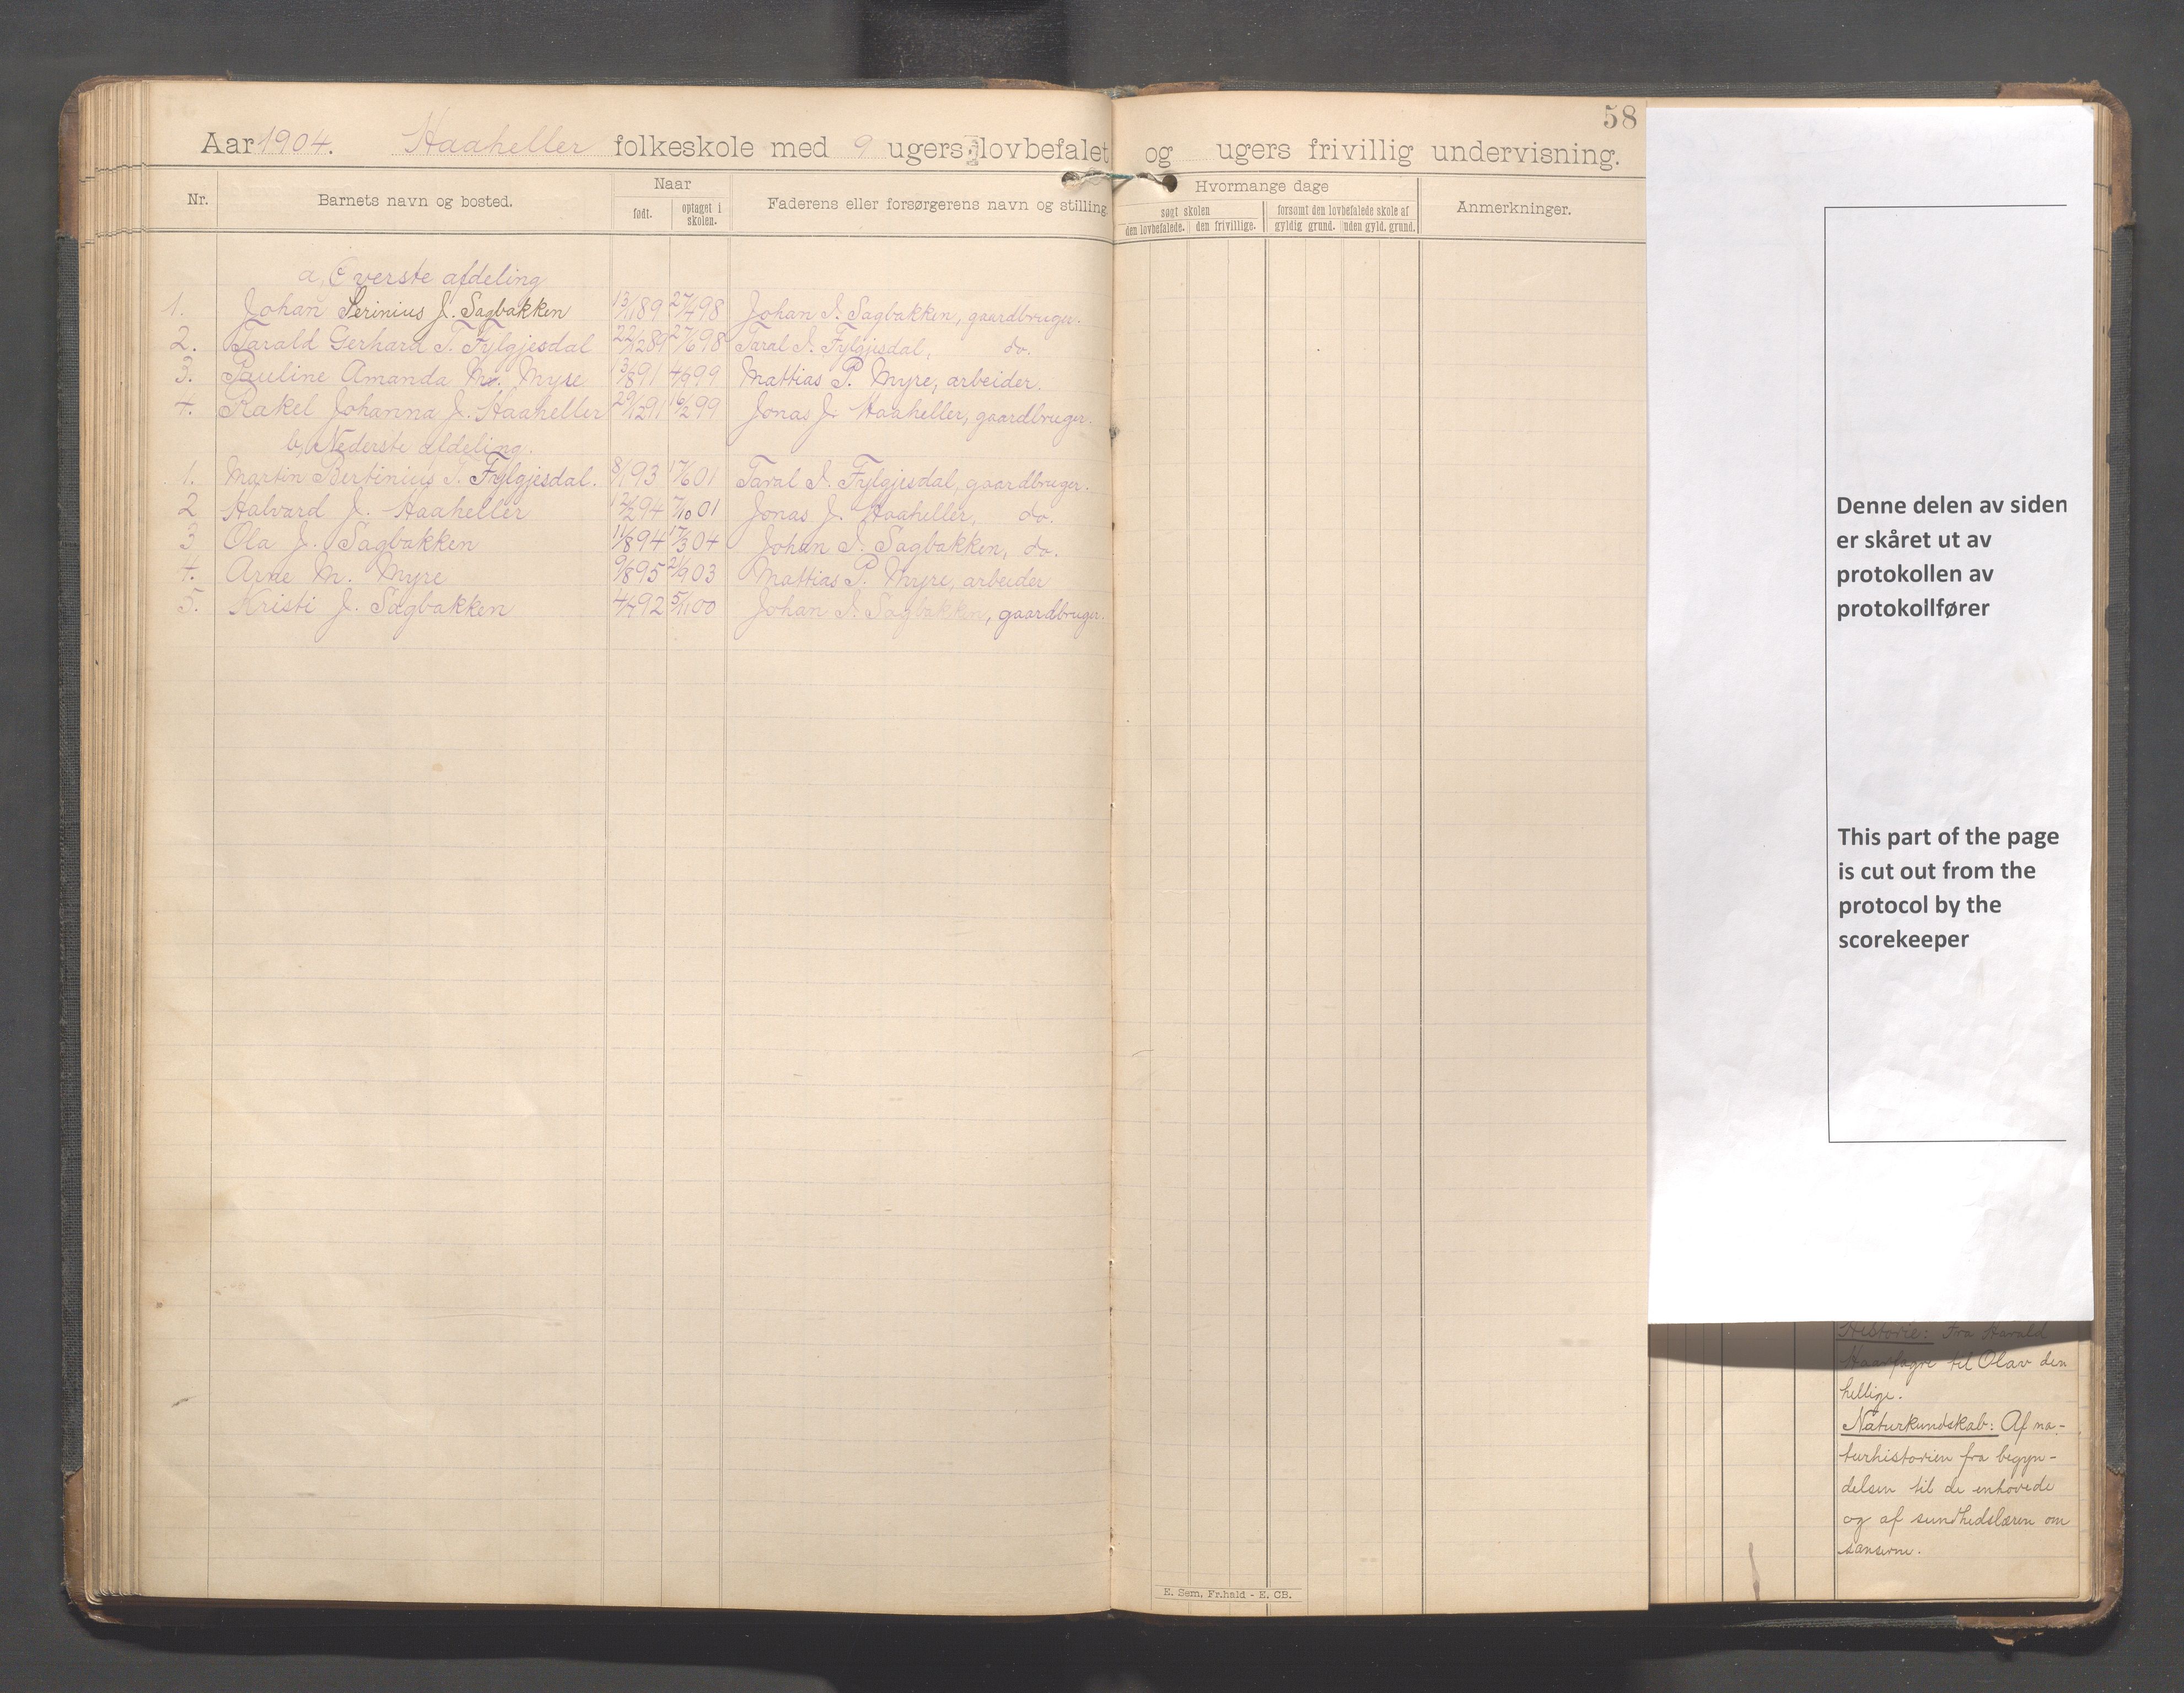 58
Aar 1904. Haaheller folkeskole med 9 ugers lovbefalet og ugers frivillig undervisning.
Nr. Barnets navn og bosted. Naar Faderens eller forsørgerens navn og stilling Hvormange dage Anmerkninger.
født. optaget i skolen. søgt skolen forsømt den lovbefalede skole af
den lovbefalede. den frivillige. gyldig grund. uden gyld. grund.
a, Øverste afdeling
1. Johan Serinius J. Sagbakken 13/1 89 27/4 98 Johan I. Sagbakken, gaardbruger.
2. Tarald Gerhard T. Fylgjesdal 22/12 89 27/6 98 Taral I. Fylgjesdal, do.
3. Pauline Amanda M. Myre 13/8 91 4/9 99 Mattias P. Myre, arbeider.
4. Rakel Johanna J. Haaheller 29/12 91 16/2 99 Jonas J. Haaheller, gaardbruger.
b, Nederste afdeling.
1. Martin Bertinius T. Fylgjesdal. 8/1 93 17/6 01 Taral I. Fylgjesdal, gaardbruger.
2 Halvard J. Haaheller 12/2 94 7/10 01 Jonas J. Haaheller, do.
3 Ola J. Sagbakken 11/8 94 17/3 04 Johan I. Sagbakken, do.
4. Arne M. Myre 9/8 95 2/9 03 Mattias P. Myre, arbeider
5. Kristi J. Sagbakken 4/7 92 5/11 00 Johan I. Sagbakken, gaardbruger.
E. Sem, Fr.hald - E. CB.
Denne delen av siden
er skåret ut av
protokollen av
protokollfører
This part of the page
is cut out from the
protocol by the
scorekeeper
Historie: Fra Harald
Haarfagre til Olav den
hellige.
Naturkundskab: Af na-
turhistorien fra begyn-
delsen til de enhovede
og af sundhedslæren om
sanserne.